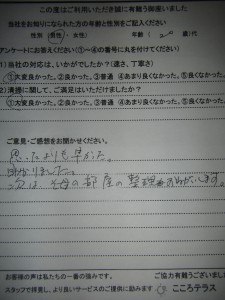 この度はご利用いただき誠に有難う御座いました
当社をお知りになられた方の年齢と性別をご記入ください
性別 男性・女性 年齢( 20 歳)代
アンケートにお答えください(①~④の番号に丸を付けてください)
1)当社の対応は、いかがでしたか?(速さ、丁寧さ)
①大変良かった。②良かった。③普通 ④あまり良くなかった。⑤良くなかった。
2)清掃に関して、ご満足はいただけましたか?
①大変良かった。②良かった。③普通 ④あまり良くなかった。⑤良くなかった。
ご意見・ご感想をお聞かせください。
思ったよりも早かった。
助かりました。
次は、祖母の部屋の整理お願いします。
お客様の声は私たちの一番の強みです。
スタッフ一同、より良いサービスのご提供に励みます
ご協力有難うございました
こころテラス